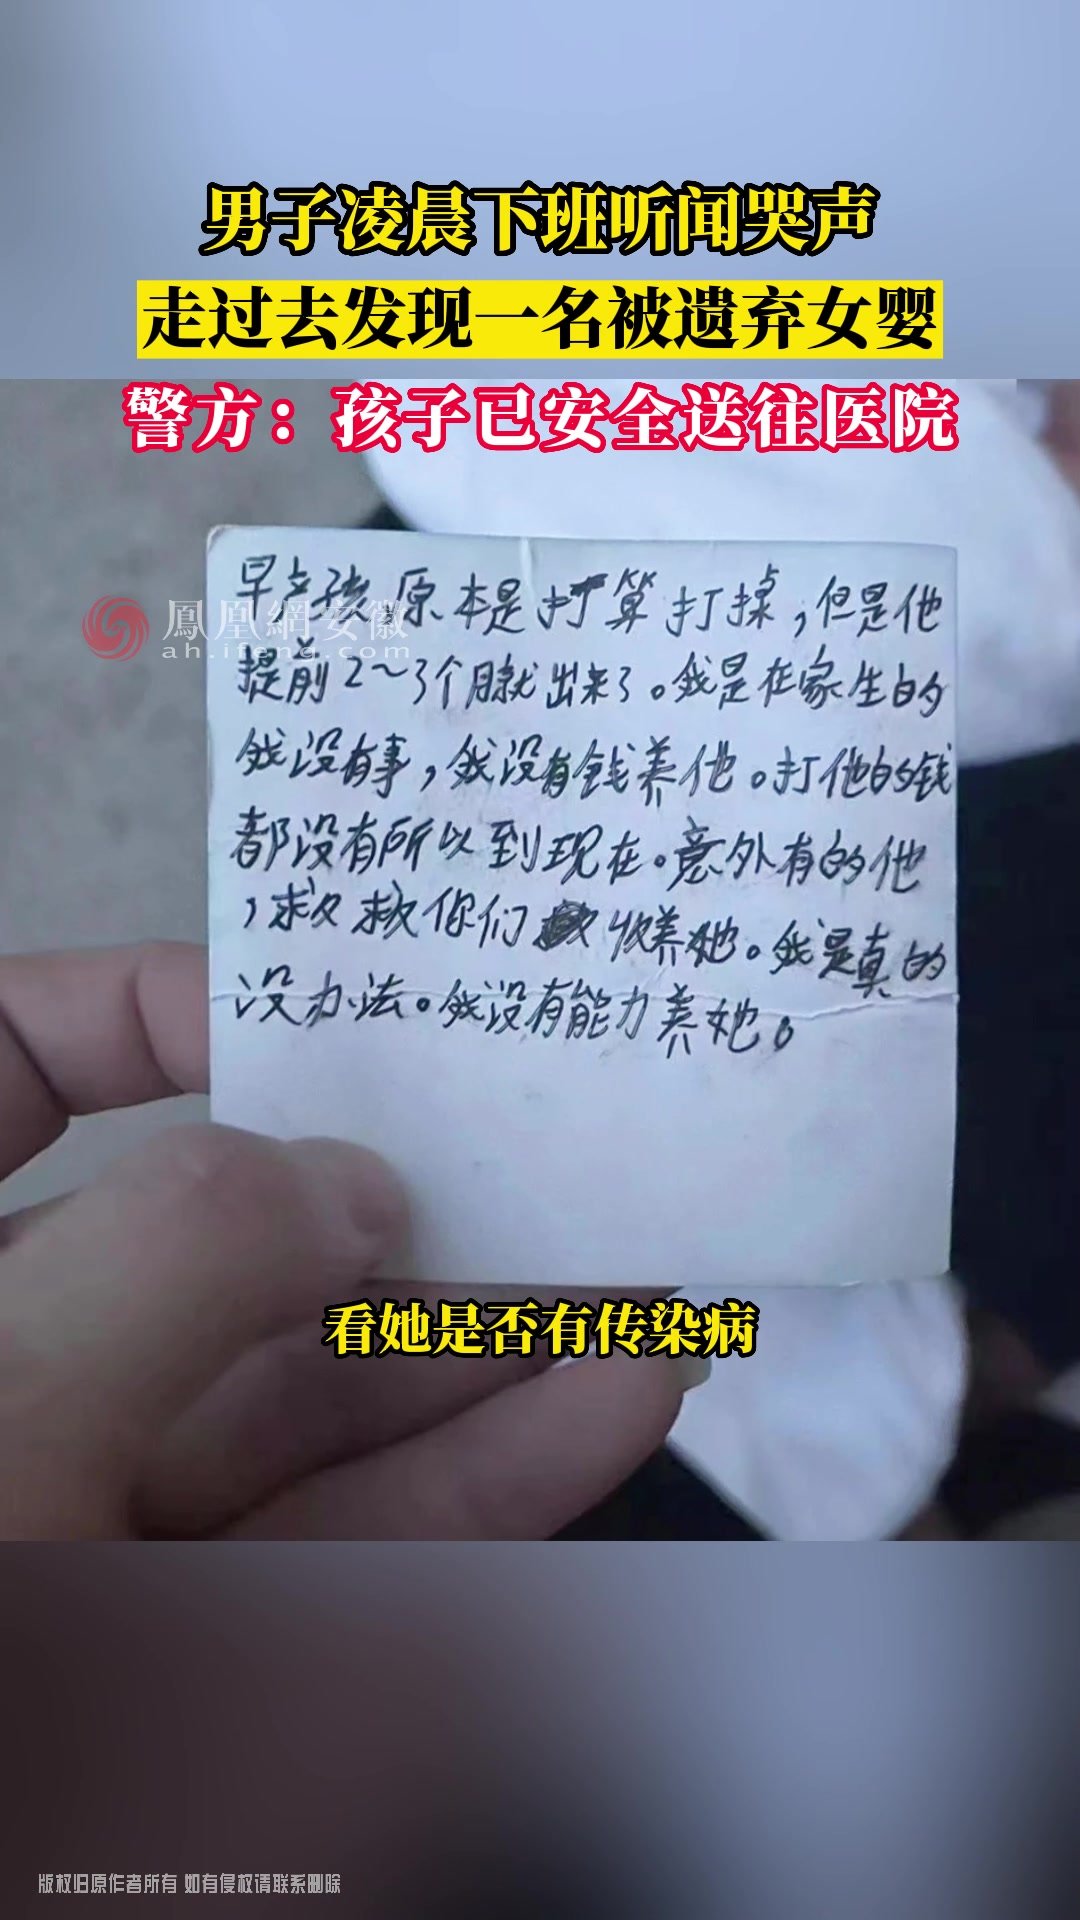 男子凌晨下班听闻哭声
走过去发现一名被遗弃女婴
警方：孩子已安全送往医院
早产孩原本是打算打掉，但是他
鳳凰網安徽
ah.ifeng.com
提前2～3个月就出来了。我是在家生的
我没有事，我没有钱养他。打他的钱
都没有所以到现在。意外有的他
，求求你们收养她。我是真的
没办法。我没有能力养她。
看她是否有传染病
版权归原作者所有 如有侵权请联系删除